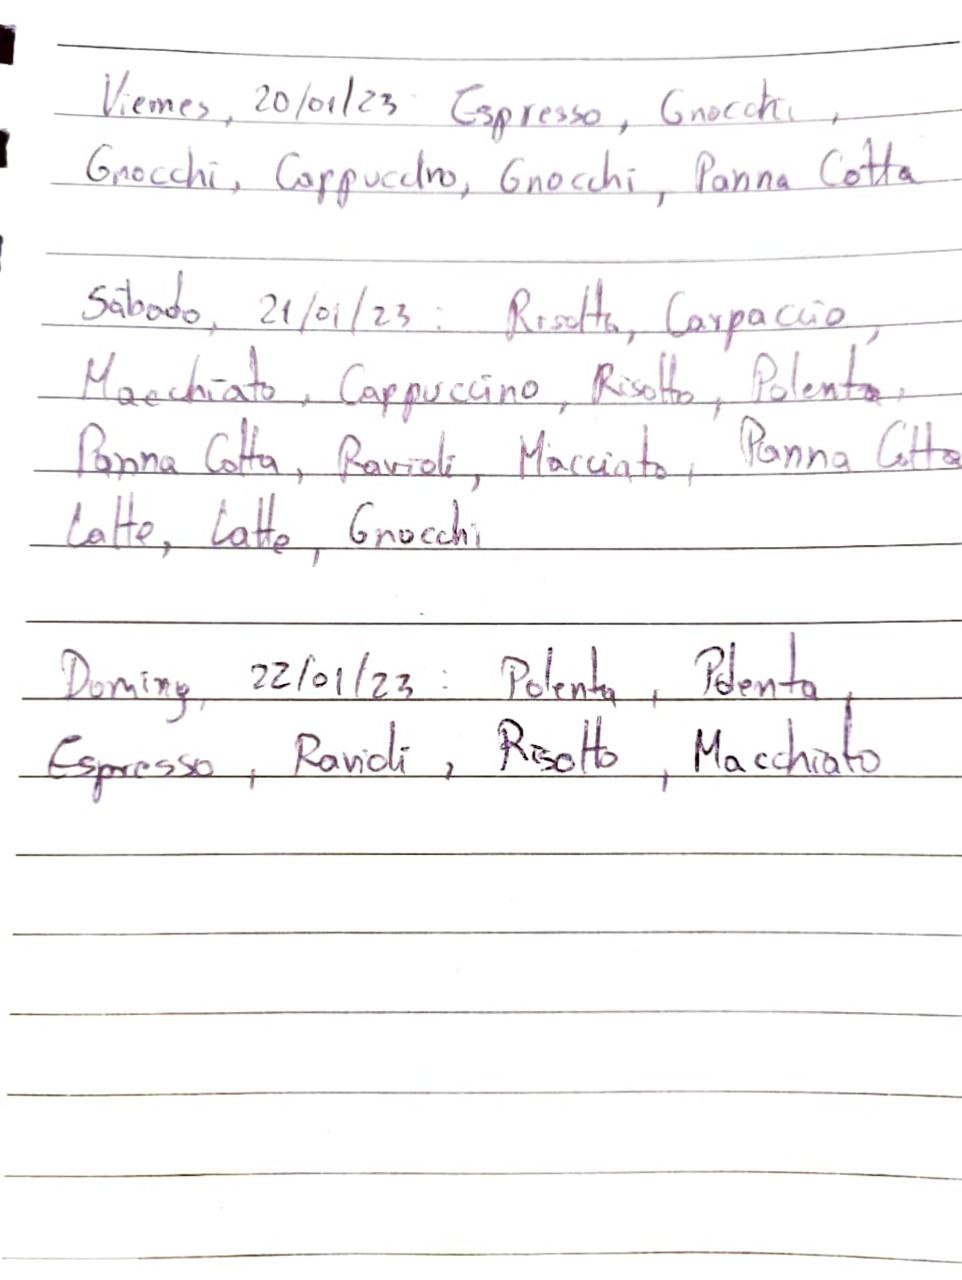 Viernes, 20/01/23 Espresso, Gnocchi,
Gnocchi, Cappuccino, Gnocchi, Panna Cotta
Sábado, 21/01/23: Risotto, Carpaccio,
Macchiato, Cappuccino, Risotto, Polenta,
Panna Cotta, Ravioli, Macciato, Panna Cotta
Latte, Latte, Gnocchi
Domingo, 22/01/23: Polenta, Polenta,
Espresso, Ravioli, Risotto, Macchiato